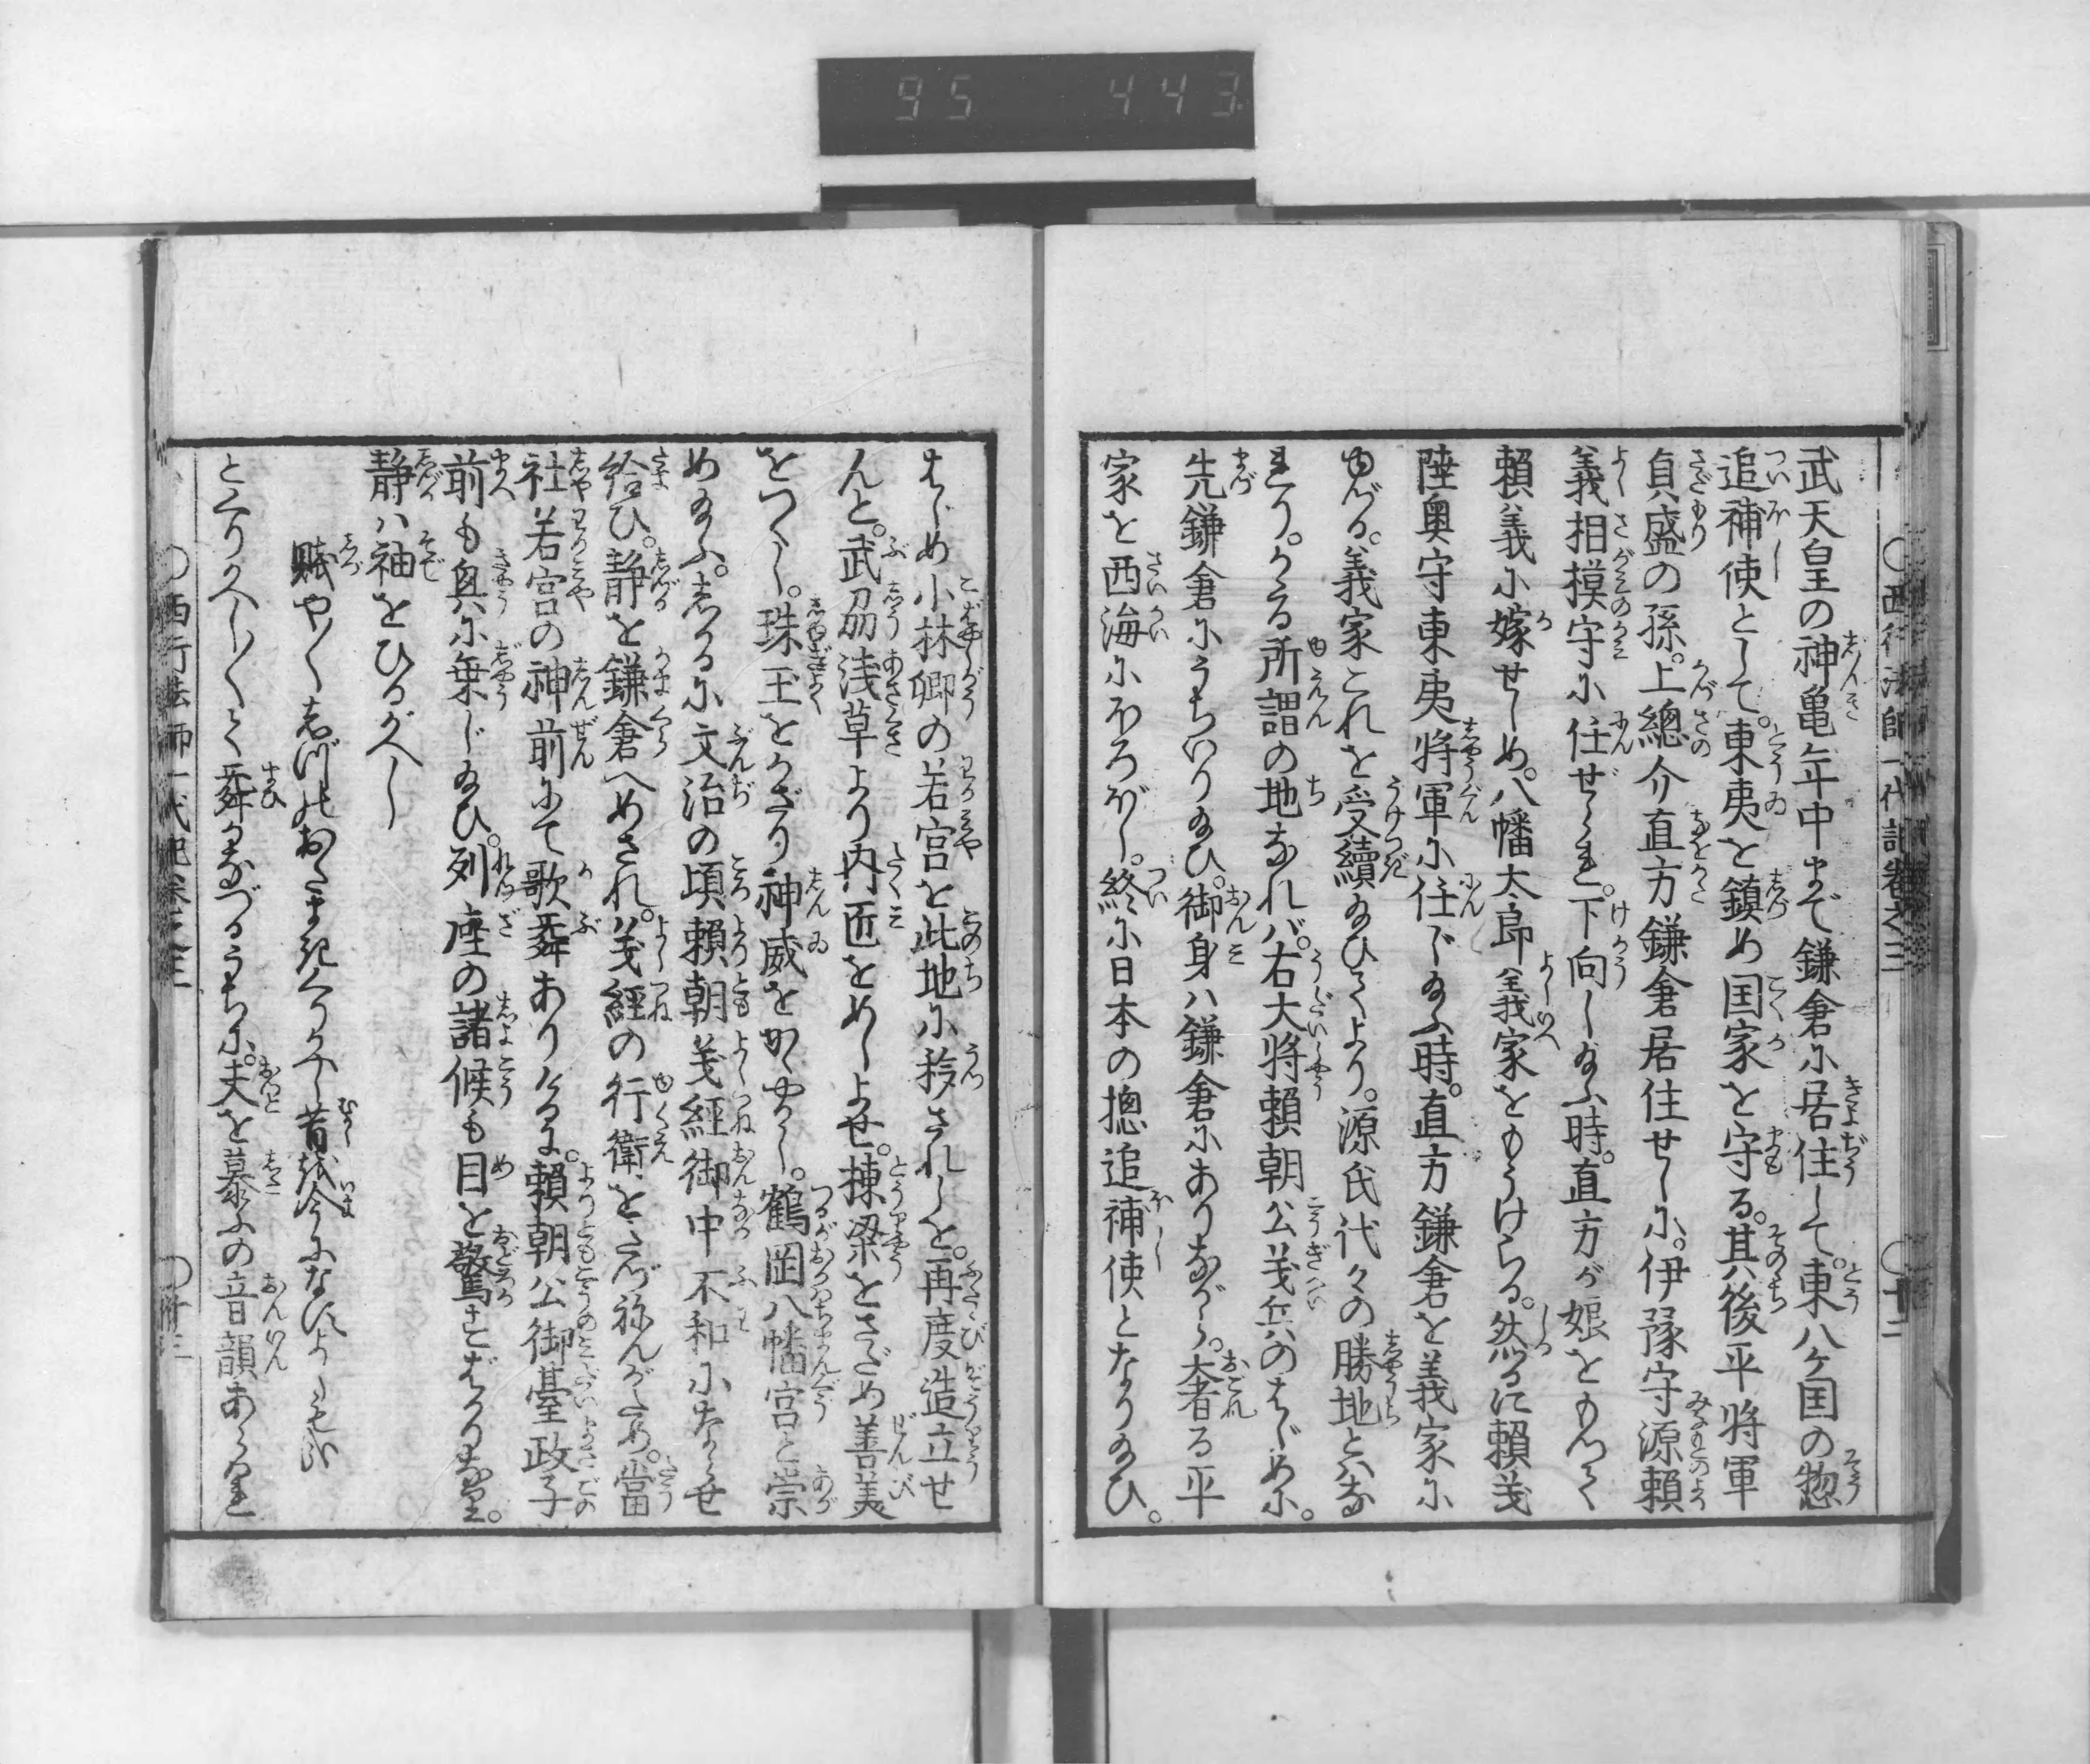 95 443
西行法師一代記巻之三 十二
武天皇の神亀年中まで鎌倉に居住して。東八ケ国の惣
追補使として。東夷を鎮め国家を守る。其後平将軍
貞盛の孫。上總介直方鎌倉居住せしに。伊豫守源頼
義相摸守に任ぜられ。下向し給ふ時。直方が娘をもつて
頼義に嫁せしめ。八幡太郎義家をもうけらる。然るに頼義
陸奥守東夷将軍に任じ給ふ時。直方鎌倉を義家に
ゆづる。義家これを受續給ひてより。源氏代々の勝地とはな
れり。かゝる所謂の地なれバ。右大将頼朝公義兵のはじめに。
先鎌倉にうちいり給ひ。御身ハ鎌倉にありながら。奢る平
家を西海にほろぼし。終に日本の摠追補使となり給ひ。
はじめ小林郷の若宮を此地に移されしを。再度造立せ
んと。武刕浅草より内匠をめしよせ。棟梁をさだめ善美
をつくし。珠玉をかざり神威をかゝやかし。鶴岡八幡宮と崇
め給ふ。しかるに文治の頃頼朝義經御中不和にならせ
給ひ。静を鎌倉へめされ。義經の行衛をたづねんがため。當
社若宮の神前にて歌舞ありけるに。頼朝公御臺政子
前も興に乗じ給ひ。列座の諸候も目を驚すばかりなり。
静ハ袖をひるがへし
賤やしづしづのおだまきくりかへし昔を今になすよしもがな
とくりかへし〳〵て舞かなづるうちに。夫を慕ふの音韻あらはれ
西行法師一代記巻之三 十三